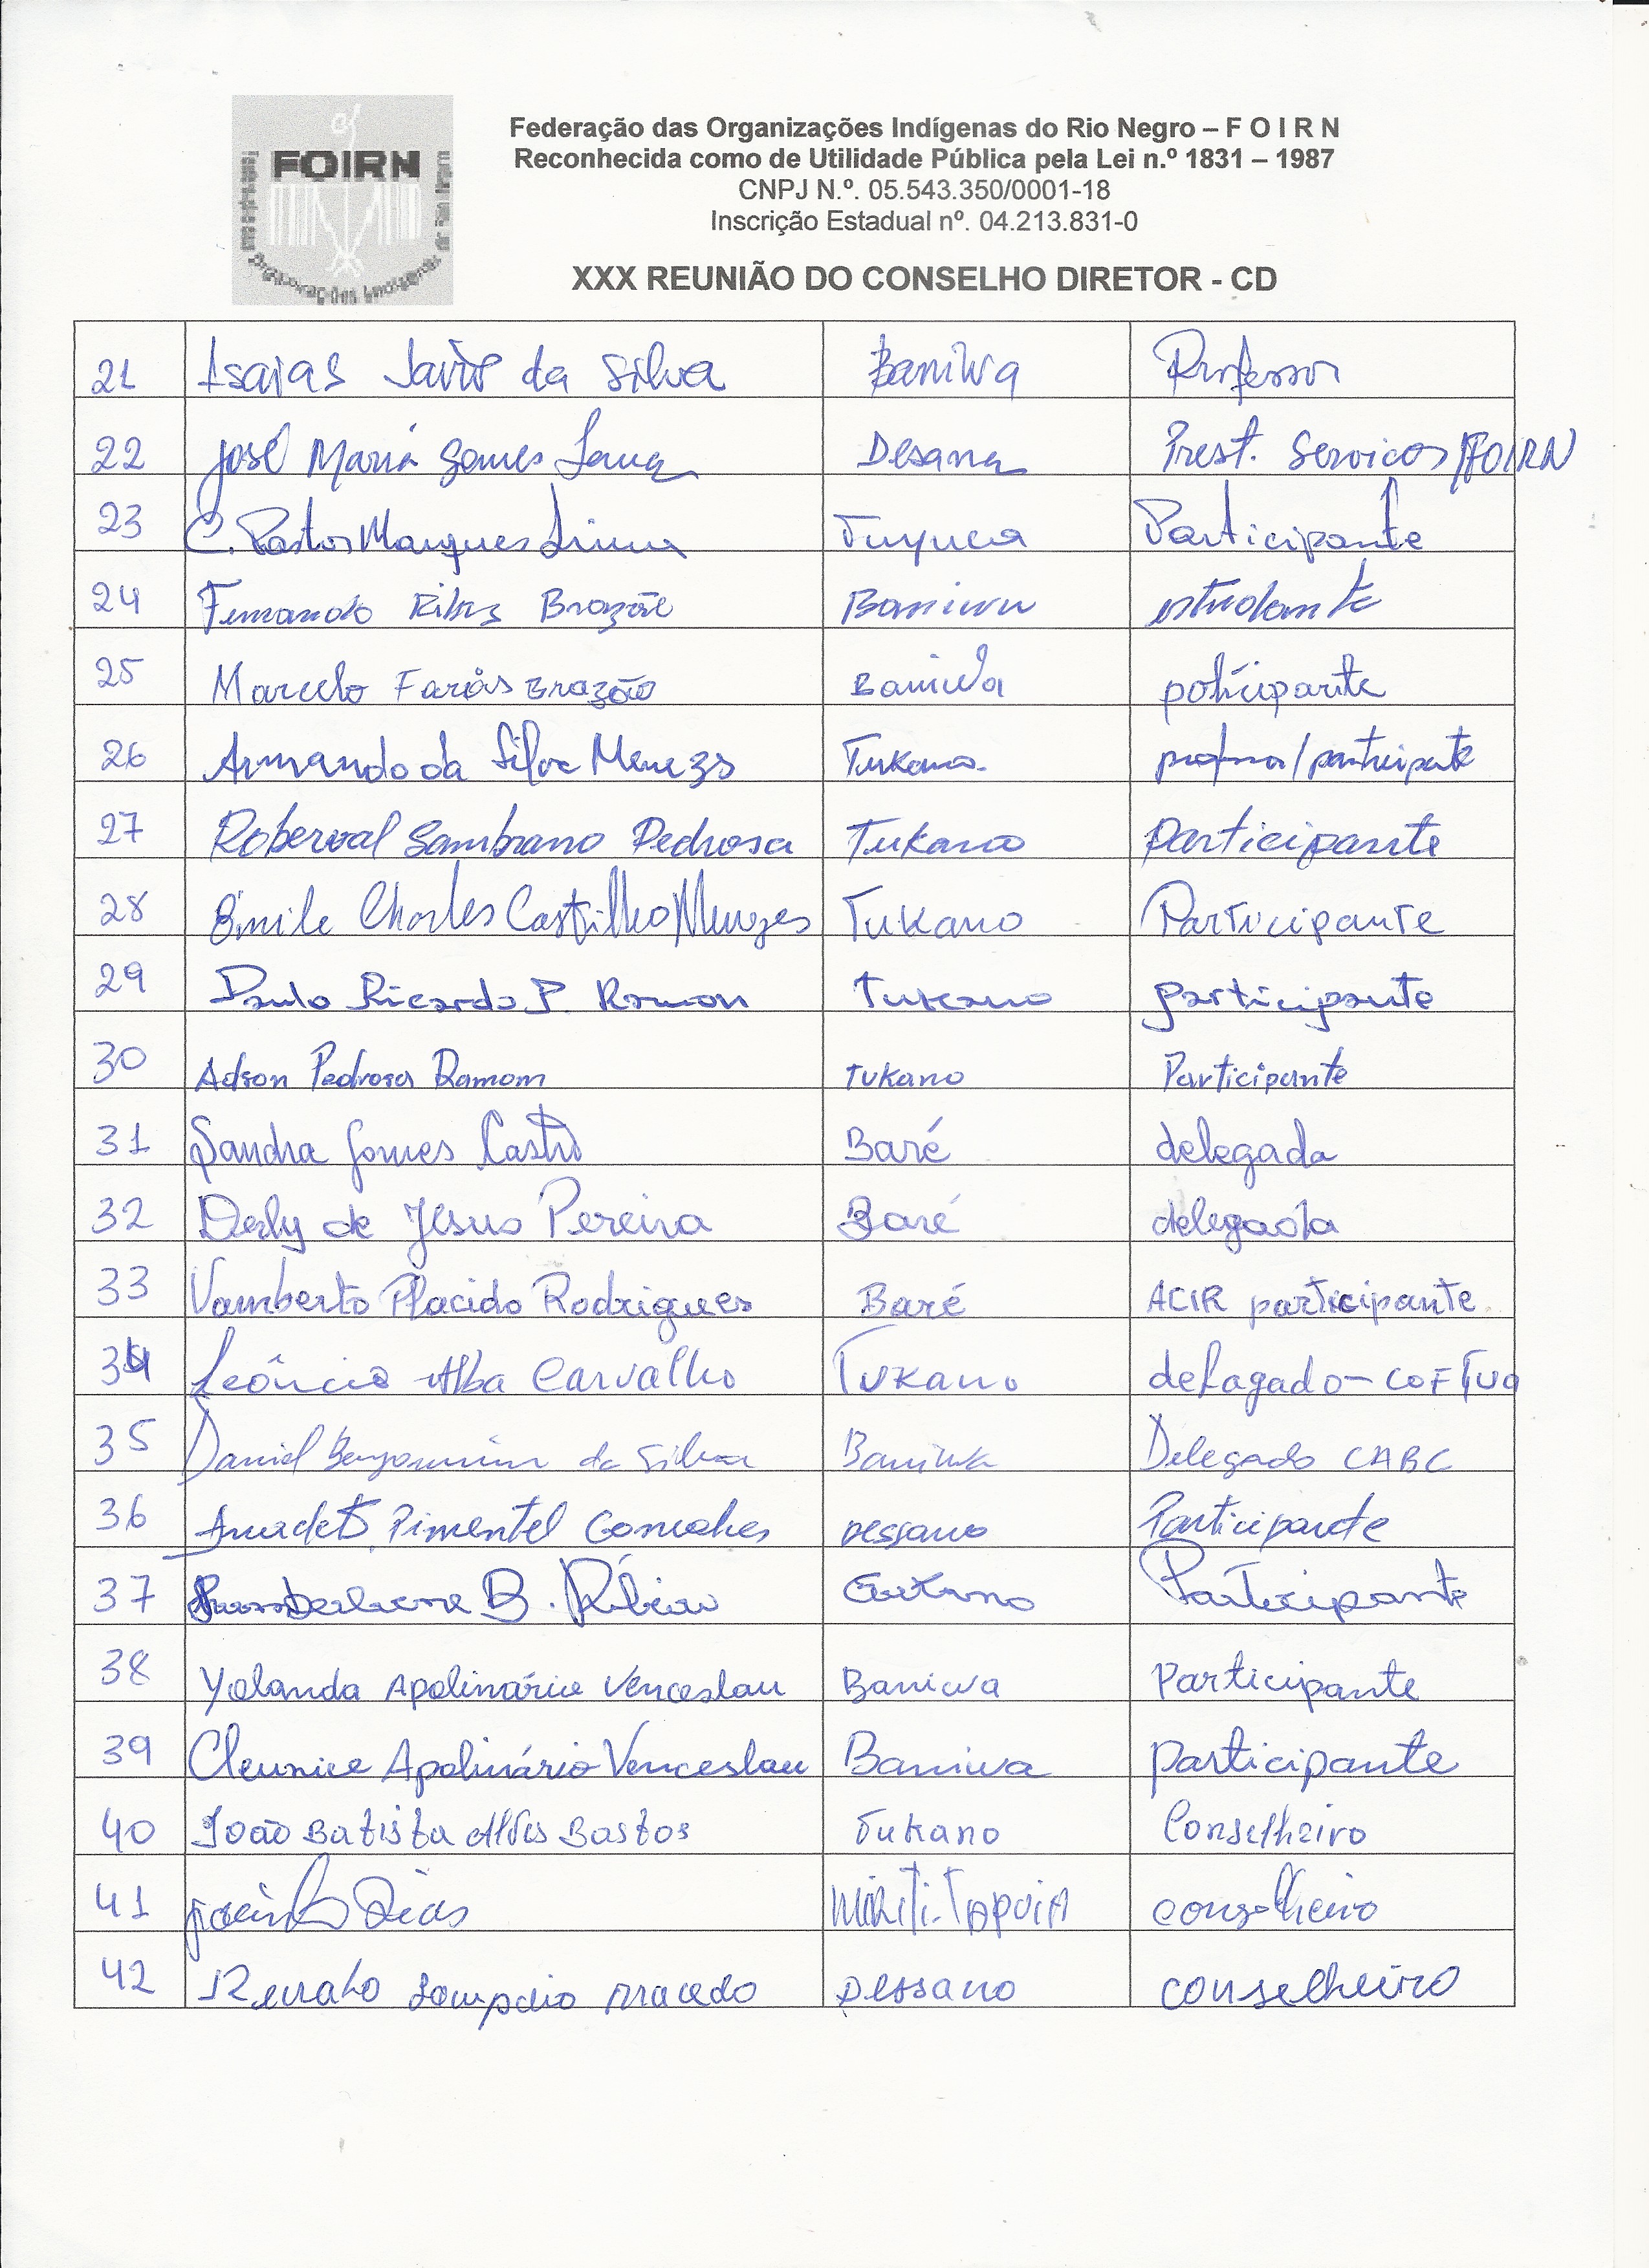 FOIRN
Federação das Organizações Indígenas do Rio Negro – F O I R N
Reconhecida como de Utilidade Pública pela Lei n.º 1831 – 1987
CNPJ N.º. 05.543.350/0001-18
Inscrição Estadual nº. 04.213.831-0
XXX REUNIÃO DO CONSELHO DIRETOR - CD
21 Isaias da Silva Baniwa Professor
22 José Maria Gomes Lana Desana Prest. Servicos/FOIRN
23 C. Pastor Marques Lima Tuyuca Participante
24 Fernando Brazão Baniwa estudante
25 Marcelo Farias Brazão Baniwa participante
26 Armando da Silva Menezs Tukano professor/participante
27 Roberval Sambrano Pedrosa Tukano Participante
28 Emile Charles Castilho Menezes Tukano Participante
29 Paulo Ricardo P. Ramon Tukano participante
30 Adson Pedrosa Ramom Tukano Participante
31 Sandra Gomes Castro Baré delegada
32 Derly de Jesus Pereira Baré delegada
33 Vamberto Placido Rodrigues Baré ACIR participante
34 Leôncio Alba Carvalho Tukano delagado-
35 Daniel Benjamim da Silva Baniwa Delegado CABC
36 Pimentel Goncalves Dessano Participante
37 B. Participante
38 Yolanda Apolinário Venceslau Baniwa Participante
39 Cleunice Apolinário Venceslau Baniwa participante
40 João Batista Alves Bastos Tukano Conselheiro
41 Dias Miriti-Tapuia conselheiro
42 Renato Sampaio Macedo Dessano conselheiro